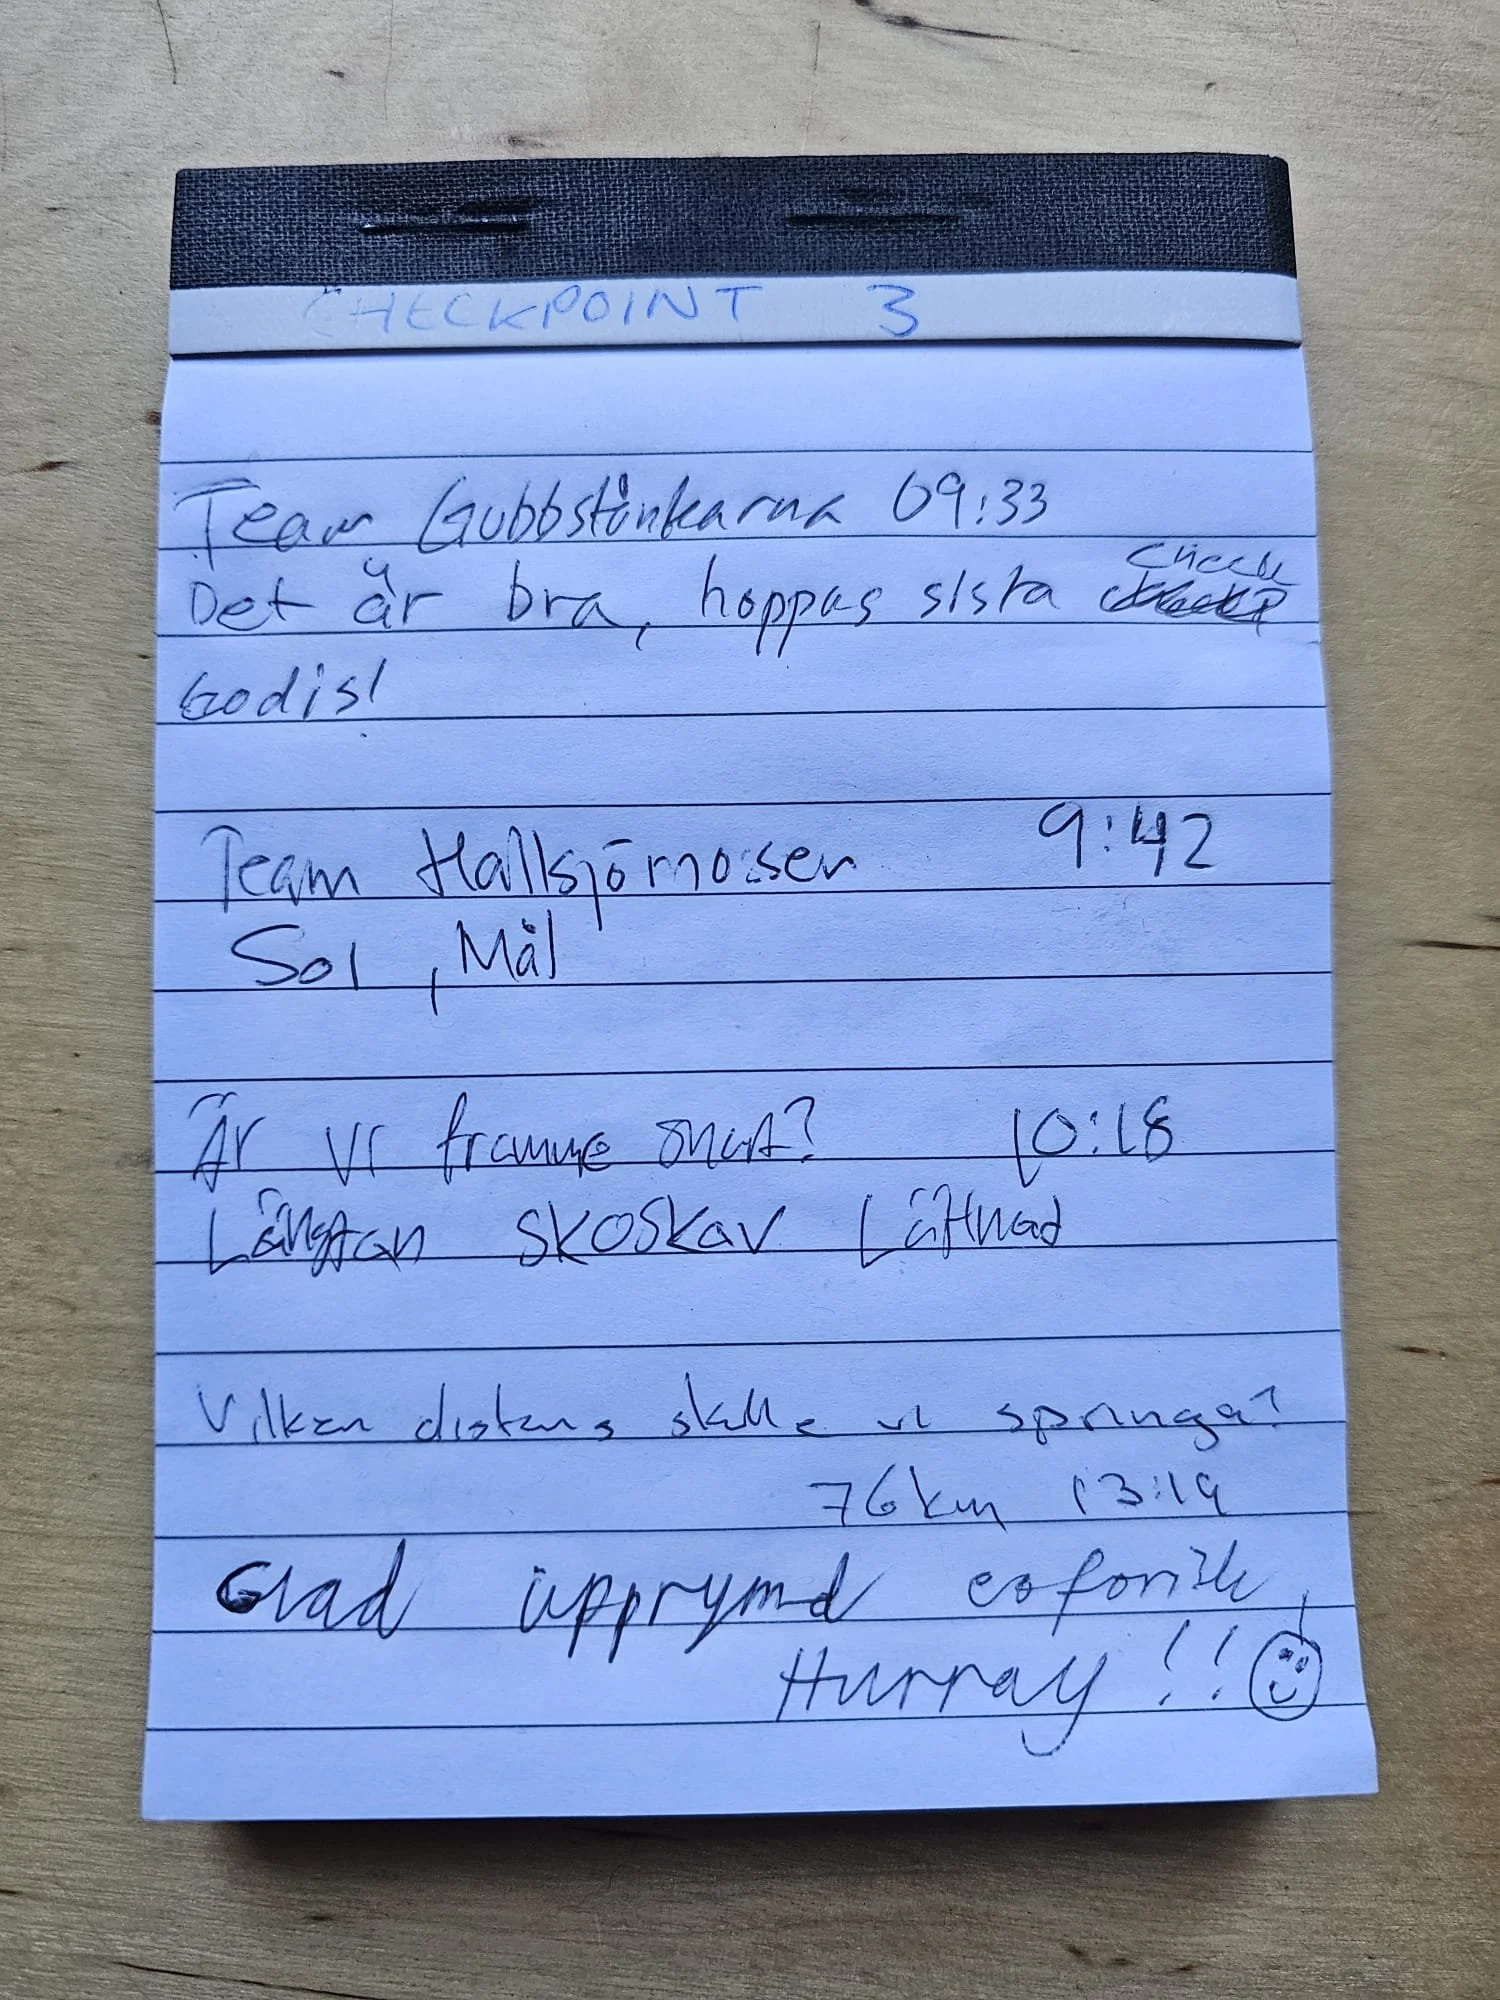 CHECKPOINT 3
Team Gubbstånkarna 09:33
Check
Det är bra, hoppas sista
Godis!
Team Hallsjömossen 9:42
Sol, Mål
Är vi framme snart? 10:18
Längtan skoskav Lättnad
Vilken distans skulle vi springa?
76km 13:19
Glad upprymd euforisk
Hurray!!!